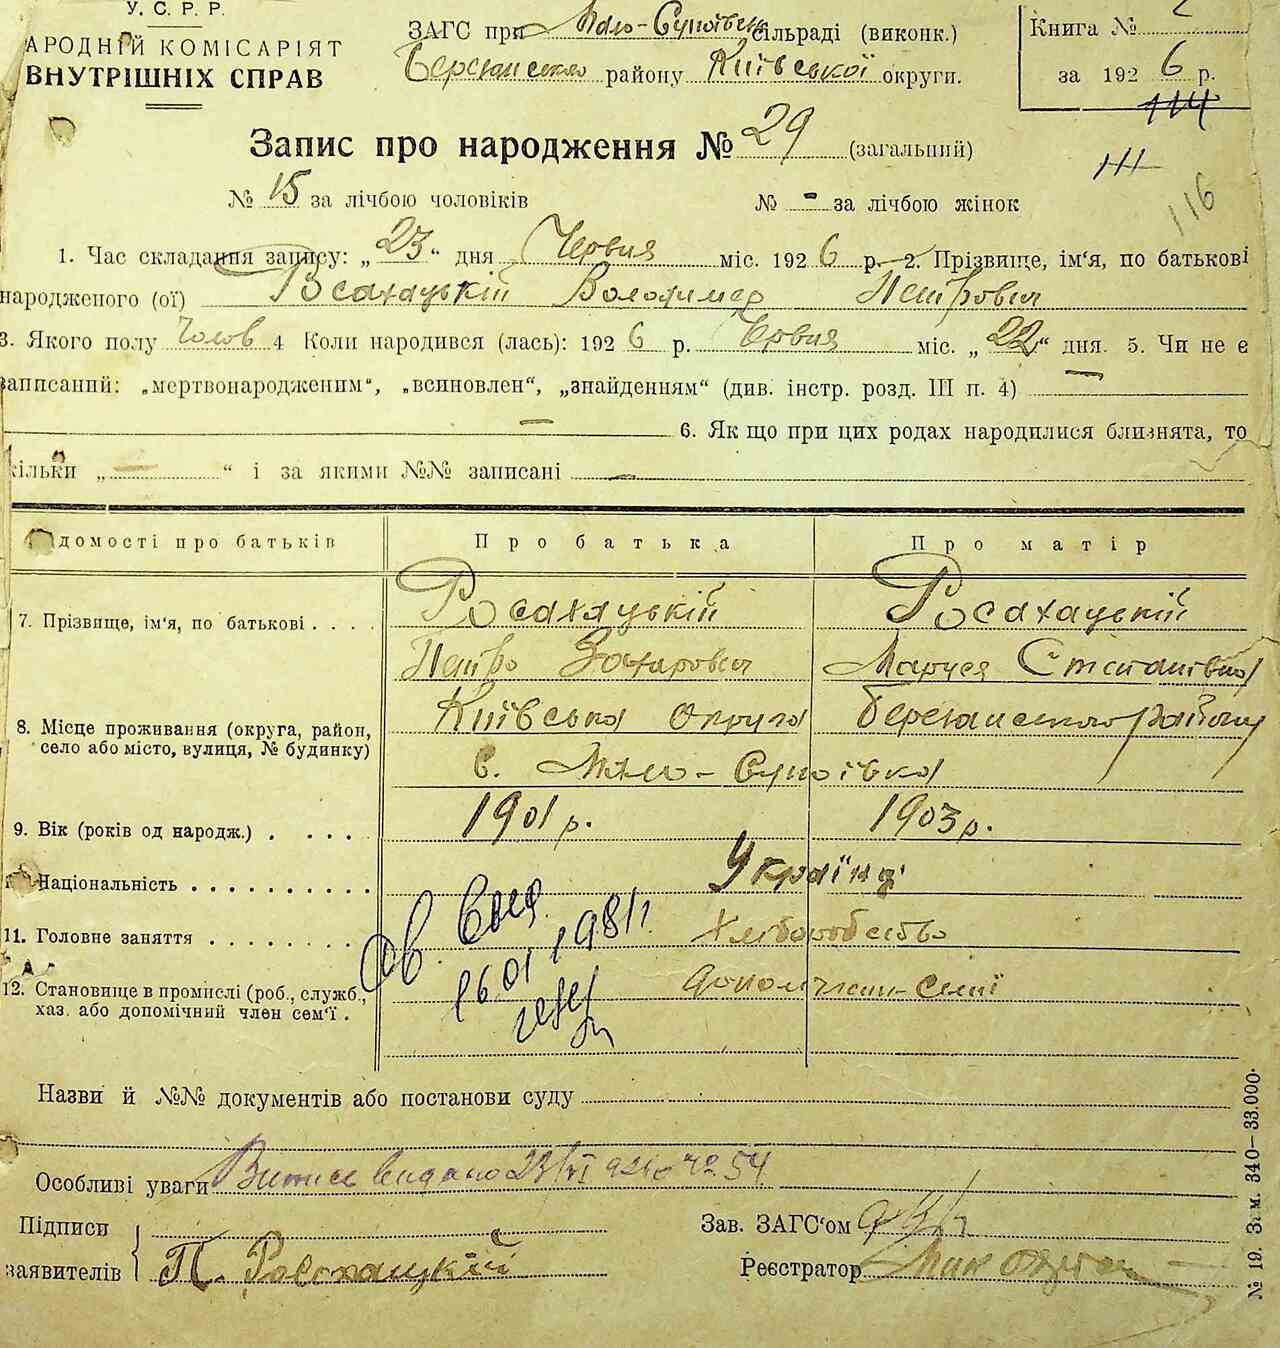 У. С. Р. Р.
АРОДНІЙ КОМІСАРІЯТ
ВНУТРІШНІХ СПРАВ
ЗАГС при Мало-Супоївск сільраді (виконк.)
Березанського району Київської округи.
Книга №
за 1926 р.
114
111
116
Запис про народження № 29 (загальний)
№ 15 за лічбою чоловіків № - за лічбою жінок
1. Час складання запису: „23“ дня Червня міс. 1926 р. 2. Прізвище, ім'я, по батькові
народженого (ої) Росахацькій Володимер Петрович
3. Якого полу Чолов 4 Коли народився (лась): 1926 р. Червня міс. „22“ дня. 5. Чи не є
записаний: „мертвонародженим“, „всиновлен“, „знайденням“ (див. інстр. розд. III п. 4) —
— 6. Як що при цих родах народилися близнята, то
кільки „—“ і за якими №№ записані —
домості про батьків Про батька Про матір
7. Прізвище, ім'я, по батькові . . . . Росахацькій Росахацькій
Петро Захарович Маруся Степанівна
8. Місце проживання (округа, район, село або місто, вулиця, № будинку) Київська округа Березанського району
с. Мало-Супоївка
9. Вік (років од народж.) . . . . 1901 р. 1903 р.
Національність . . . . . . . . . . Українці
11. Головне заняття . . . . . . . . Хліборобство
12. Становище в промислі (роб., служб., хаз. або допомічний член сем'ї . семії
16.01.1981
Назви й №№ документів або постанови суду
Особливі уваги Витиск видано 23/VI 926 № 54
Підписи
заявителів П. Росохацкій
Зав. ЗАГС'ом
Реєстратор
№ 19. Зам. 340—33.000.